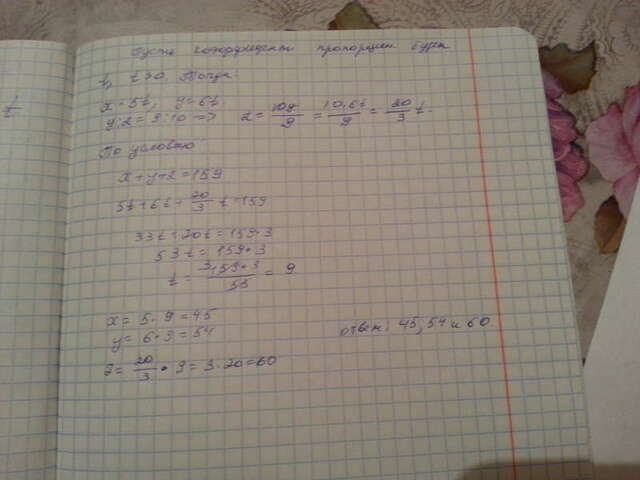 Пусть коэффициент пропорции будет
t, t>0. Тогда:
x=5t, y=6t.
y:z=9:10 => z= 10y/9 = 10·6t/9 = 20/3 t.
По условию
x+y+z=159
5t+6t+ 20/3 t=159
33t+20t=159·3
53t=159·3
t= 159·3/53 = 9
x= 5·9=45
y= 6·9=54
z= 20/3 · 9= 3·20=60
ответ: 45, 54 и 60.